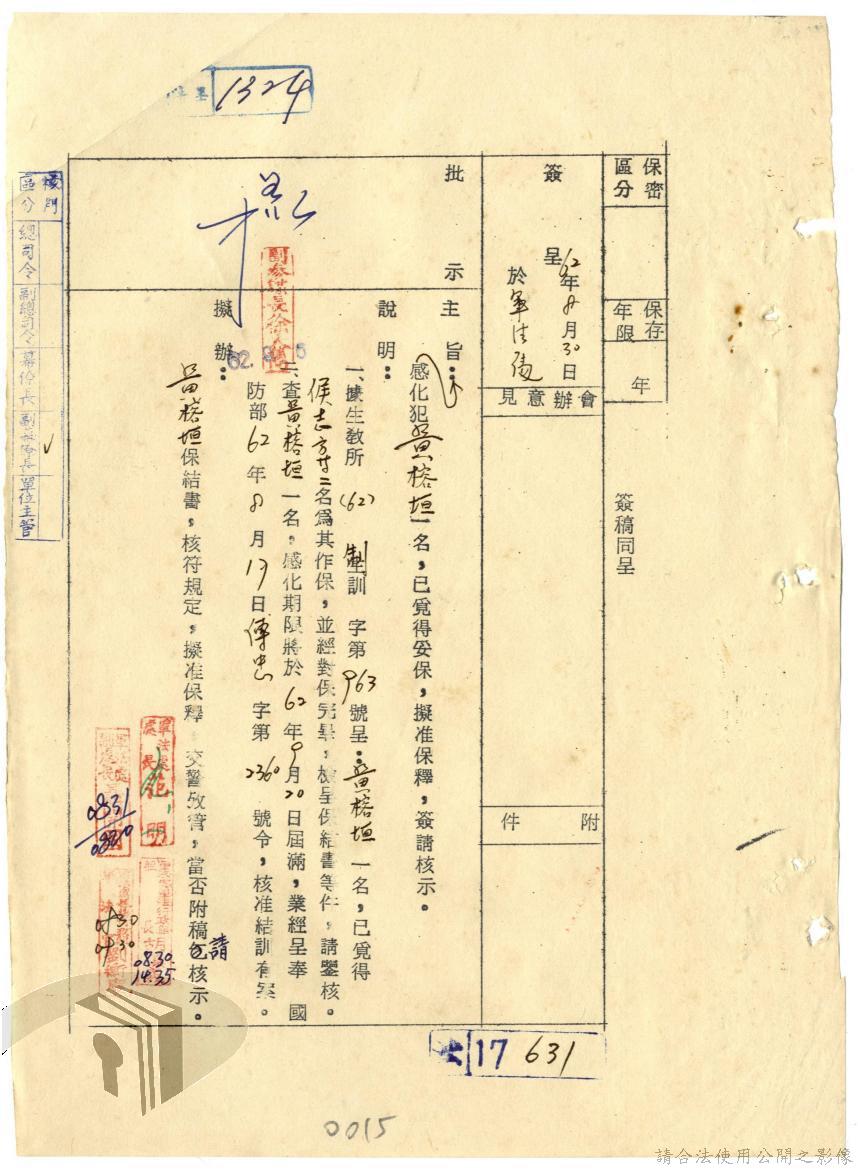 1324
保密區分
保存年限
年
簽稿同呈
簽
呈
62年8月30日
於軍法處
會辦意見
附件
批示
主旨：
感化犯黃榕垣一名，已覓得妥保，擬准保釋，簽請核示。
說明：
一、據生教所(62)訓字第963號呈：黃榕垣一名，已覓得
侯志方等二名為其作保，並經對保完畢，檢呈保結書等件，請鑒核。
二、查黃榕垣一名，感化期限將於62年9月20日屆滿，業經呈奉 國
防部62年8月17日 字第2360號令，核准結訓有案。
擬辦：
黃榕垣保結書，核符規定，擬准保釋，交警攷管，當否附稿請核示。
區分
總司令
副總司令
幕僚長
單位主管
軍法處
處長
明
0831
0820
0830
0830
08.30.
14.35
17 631
0015
請合法使用公開之影像